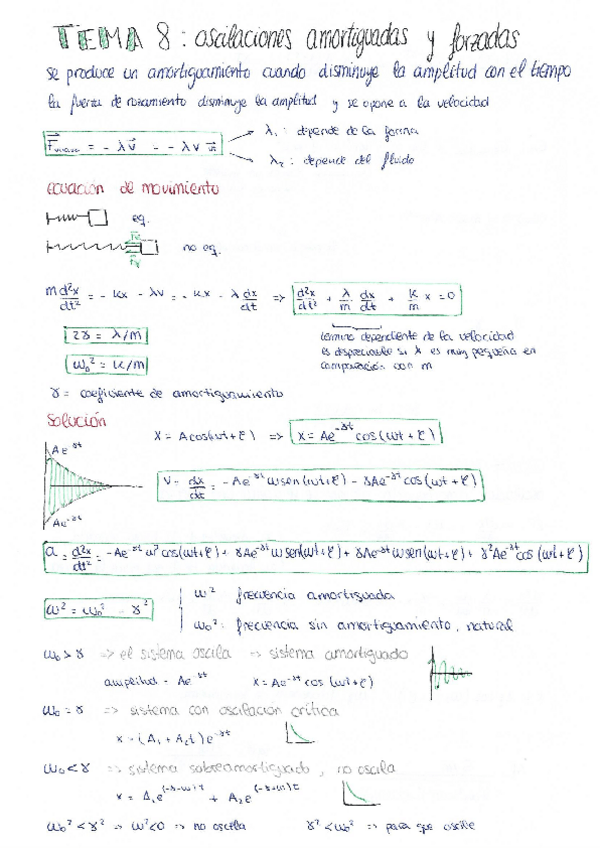 TEMA 8: oscilaciones amortiguadas y forzadas
se produce un amortiguamiento cuando disminuye la amplitud con el tiempo
la fuerza de rozamiento disminuye la amplitud y se opone a la velocidad
λ₁ : depende de la forma
= - λv⃗ = - λv
λ₂ : depende del fluido
ecuación de movimiento
eq.
no eq.
m d²x/dt² = - kx - λv = - kx - λ dx/dt => d²x/dt² + λ/m dx/dt + k/m x = 0
2γ = λ/m
termino dependiente de la velocidad
es despreciable si λ es muy pequeña en
comparación con m
ω₀² = k/m
γ = coeficiente de amortiguamiento
Solución
x = A cos(ωt + φ) => x = Ae^-γt cos(ωt + φ)
Ae^-γt
v = dx/dt = -Ae^-γt ω sen(ωt + φ) - γAe^-γt cos(ωt + φ)
Ae^-γt
a = d²x/dt² = -Ae^-γt ω² cos(ωt + φ) + γAe^-γt ω sen(ωt + φ) + γAe^-γt ω sen(ωt + φ) + γ²Ae^-γt cos(ωt + φ)
ω² = ω₀² - γ²
ω² frecuencia amortiguada
ω₀² : frecuencia sin amortiguamiento, natural
ω₀ > γ => el sistema oscila => sistema amortiguado
amplitud = Ae^-γt x = Ae^-γt cos(ωt + φ)
ω₀ = γ => sistema con oscilación crítica
x = (A₁ + A₂t) e^-γt
ω₀ < γ => sistema sobreamortiguado, no oscila
x = A₁e^(-γ-ω)t + A₂e^(-γ+ω)t
ω₀² < γ² => ω² < 0 => no oscila γ² < ω₀² => para que oscile